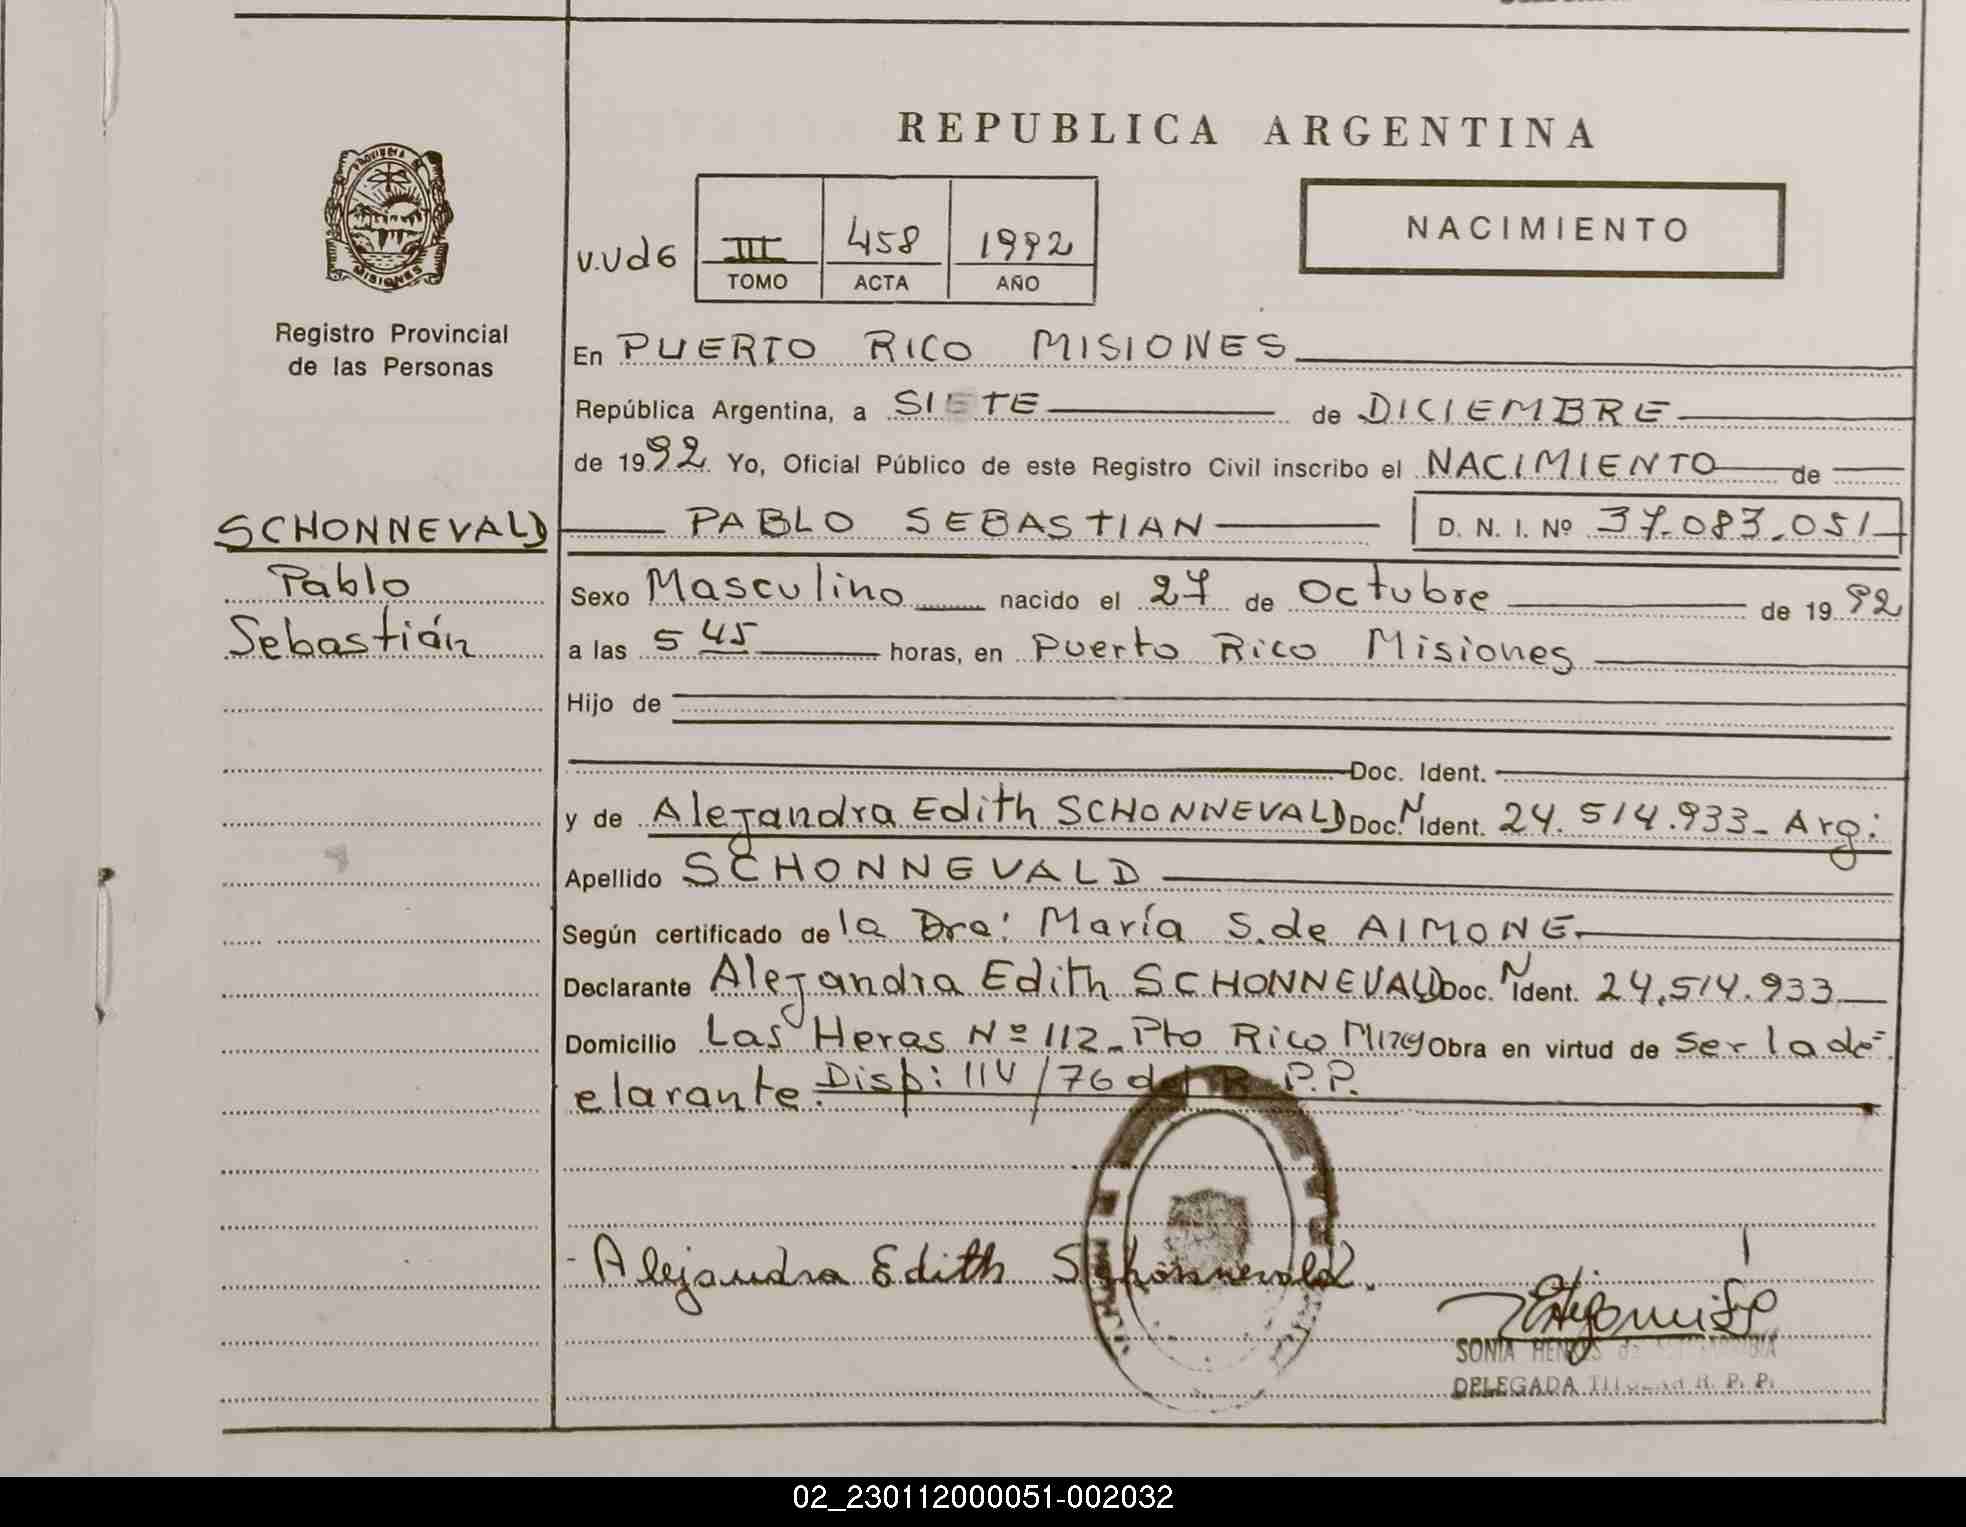 REPUBLICA ARGENTINA
PROVINCIA DE
MISIONES
Registro Provincial
de las Personas
V.Ud6
III 458 1992
TOMO ACTA AÑO
NACIMIENTO
En PUERTO RICO MISIONES
República Argentina, a SIETE de DICIEMBRE
de 1992 Yo, Oficial Público de este Registro Civil inscribo el NACIMIENTO de
SCHONNEVALD
Pablo
Sebastián
PABLO SEBASTIAN D. N. I. Nº 37.083.051
Sexo Masculino nacido el 27 de Octubre de 1992
a las 5 45 horas, en Puerto Rico Misiones
Hijo de
Doc. Ident.
y de Alejandra Edith SCHONNEVALD Doc. N Ident. 24.514.933 - Arg:
Apellido SCHONNEVALD
Según certificado de la Dra: María S. de AIMONE.
Declarante Alejandra Edith SCHONNEVALD Doc. N Ident. 24.514.933
Domicilio Las Heras Nº 112 - Pto Rico Mnes Obra en virtud de ser la de=
clarante. Disp: 114/76 del R.P.P.
- Alejandra Edith Schonnevald.
SONIA
DELEGADA TITULAR R. P. P.
02_230112000051-002032